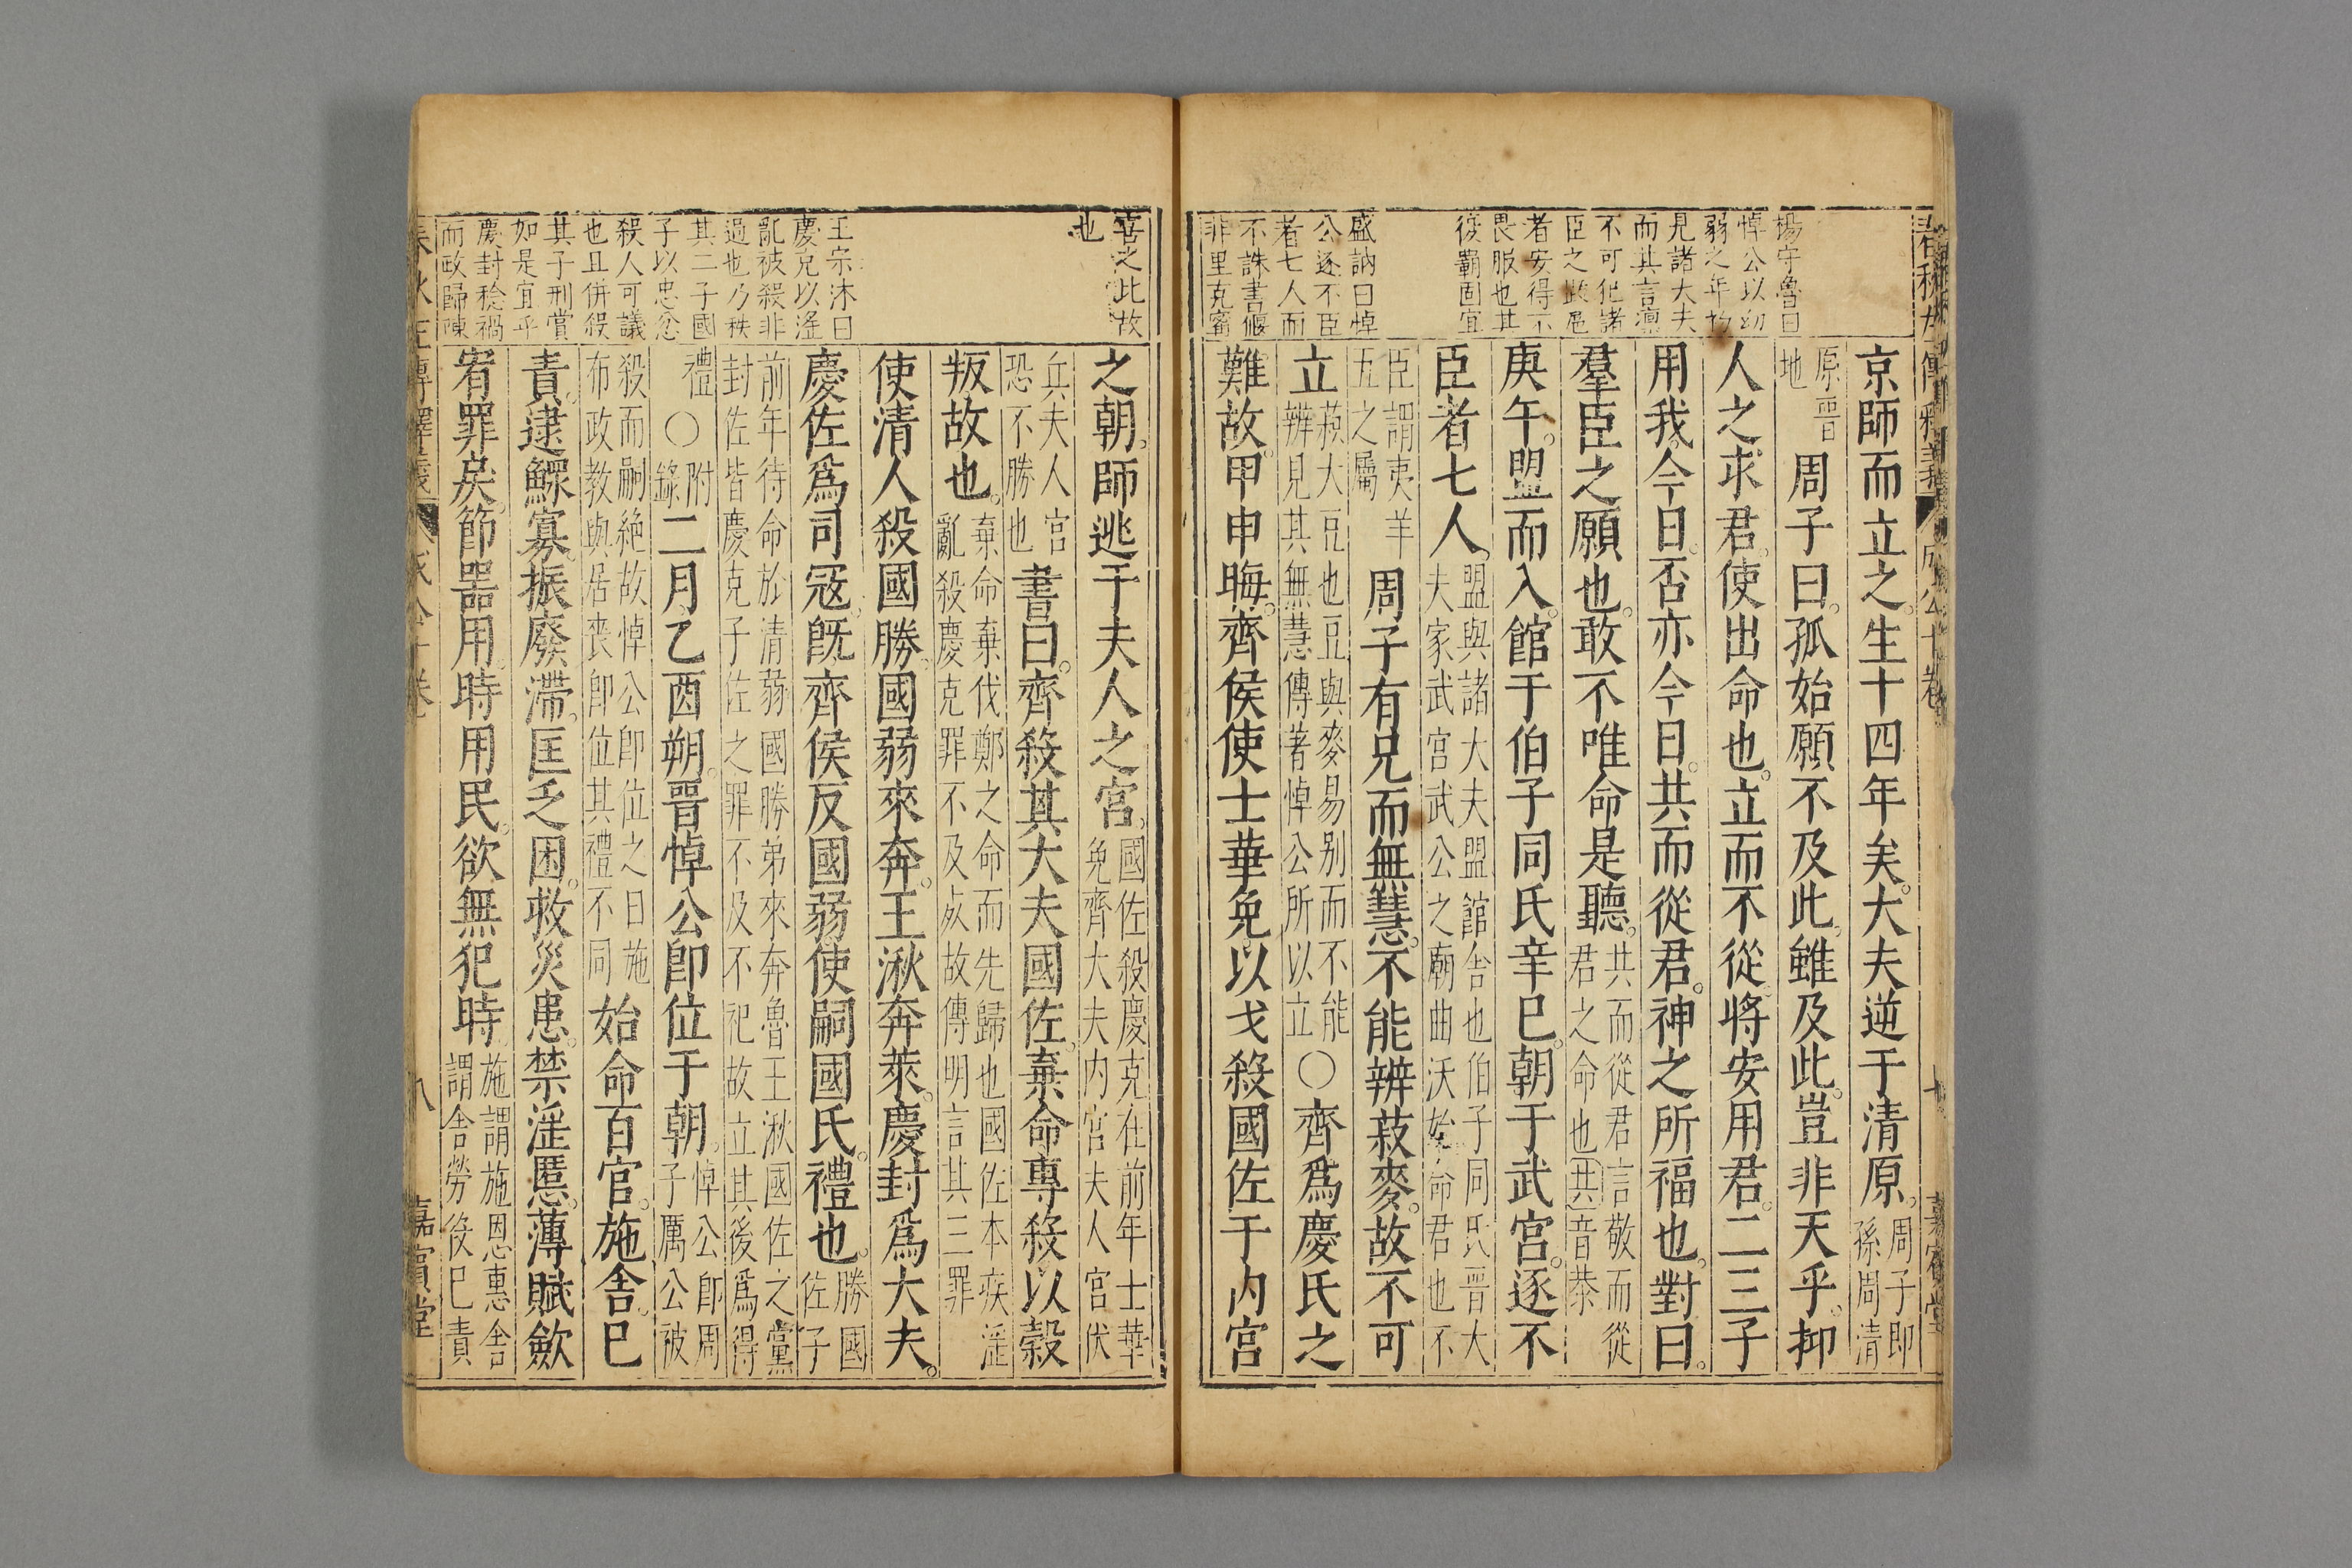 春秋左傳釋義 成公十卷 嘉賓堂
楊守魯曰
悼公以幼
弱之年初
見諸大夫
而其言凛
不可犯諸
臣之
者安得不
畏服也其
後覇固宜
盛訥曰悼
公逐不臣
者七人而
不誅書偃
非里克甯
京師而立之。生十四年矣。大夫逆于清原。周子即孫周清
原晉地 周子曰。孤始願不及此。雖及此。豈非天乎。抑
人之求君。使出命也。立而不從。將安用君。二三子
用我今日。否亦今日。共而從君。神之所福也。對曰。
羣臣之願也。敢不唯命是聽。共而從君言敬而從君之命也共音恭
庚午。盟而入。館于伯子同氏。辛巳。朝于武宮。逐不
臣者七人。盟與諸大夫盟館舍也伯子同氏晉大夫家武宮武公之廟曲沃始命君也不
臣謂夷羊五之屬 周子有兄而無慧。不能辨菽麥。故不可
立 菽大豆也豆與麥易别而不能辨見其無慧傳著悼公所以立 ○齊爲慶氏之
難故。甲申晦。齊侯使士華免。以戈殺國佐于内宮
喜之此故
也
王宗沐曰
慶克以淫
亂被殺非
過也乃秩
其二子國
子以忠忿
殺人可議
也且併殺
其子刑賞
如是宜乎
慶封稔禍
而政歸陳
之朝。師逃于夫人之宮。國佐殺慶克在前年士華免齊大夫内宮夫人宮伏
兵夫人宮恐不勝也 書曰。齊殺其大夫國佐。棄命專殺以穀
叛故也。棄命棄伐鄭之命而先歸也國佐本疾淫亂殺慶克罪不及死故傳明言其三罪
使清人殺國勝。國弱來奔。王湫奔萊。慶封爲大夫。
慶佐爲司寇。旣。齊侯反國弱使嗣國氏。禮也。勝國佐子
前年待命於清蒻國勝弟來奔魯王湫國佐之黨封佐皆慶克子佐之罪不及不祀故立其後爲得
禮 ○附錄二月。乙酉朔。晉悼公卽位于朝。悼公卽周子厲公被
殺而嗣絶故悼公卽位之日施布政教與居喪卽位其禮不同 始命百官。施舍。已
責。逮鰥寡。振廢滯。匡乏困。救災患。禁淫慝。薄賦斂
宥罪戾。節器用。時用民。欲無犯時。施謂施恩惠舍謂舍勞役已責
春秋左傳釋義 成公十卷 八 嘉賓堂